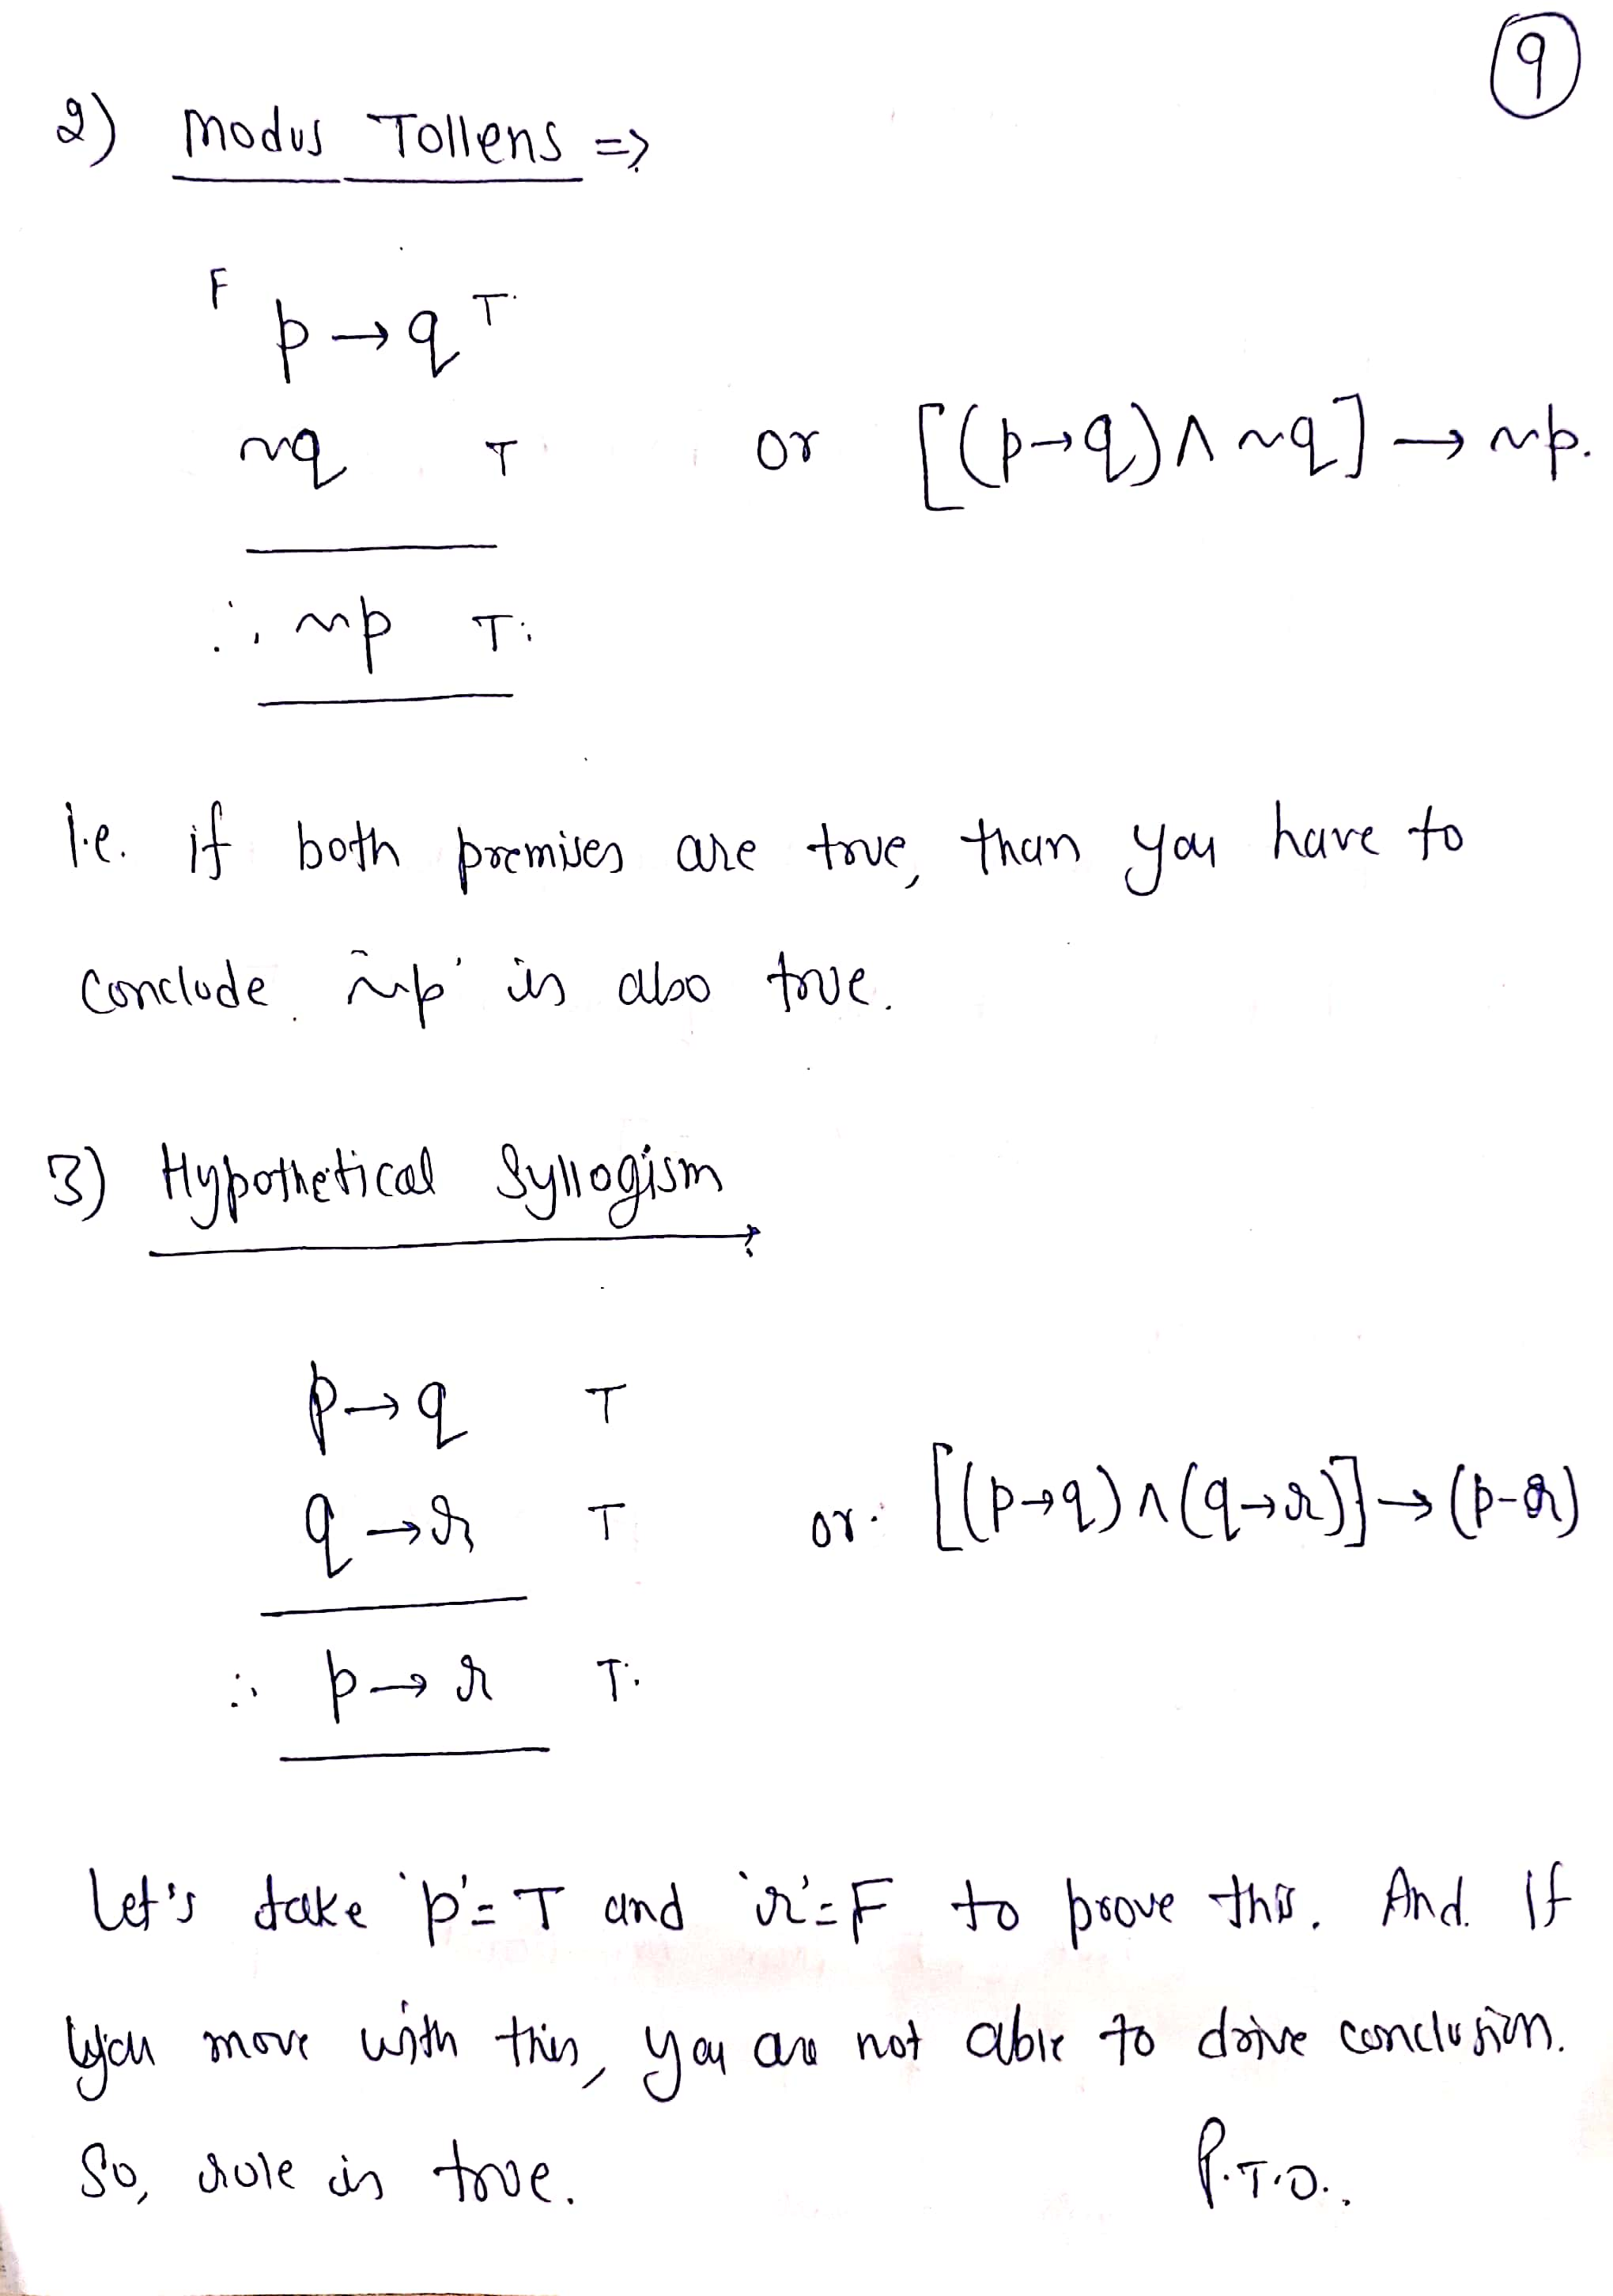 9
2) Modus Tollens =>
F p→q T
~q T or [(p→q)∧~q]→~p.
∴ ~p T
i.e. if both premises are true, than you have to
conclude '~p' is also true.
3) Hypothetical Syllogism
p→q T
q→r T or [(p→q)∧(q→r)]→(p-r)
∴ p→r T
Let's take 'p'=T and 'r'=F to prove this. And If
you move with this, you are not able to drive conclusion.
So, rule is true. P.T.O.